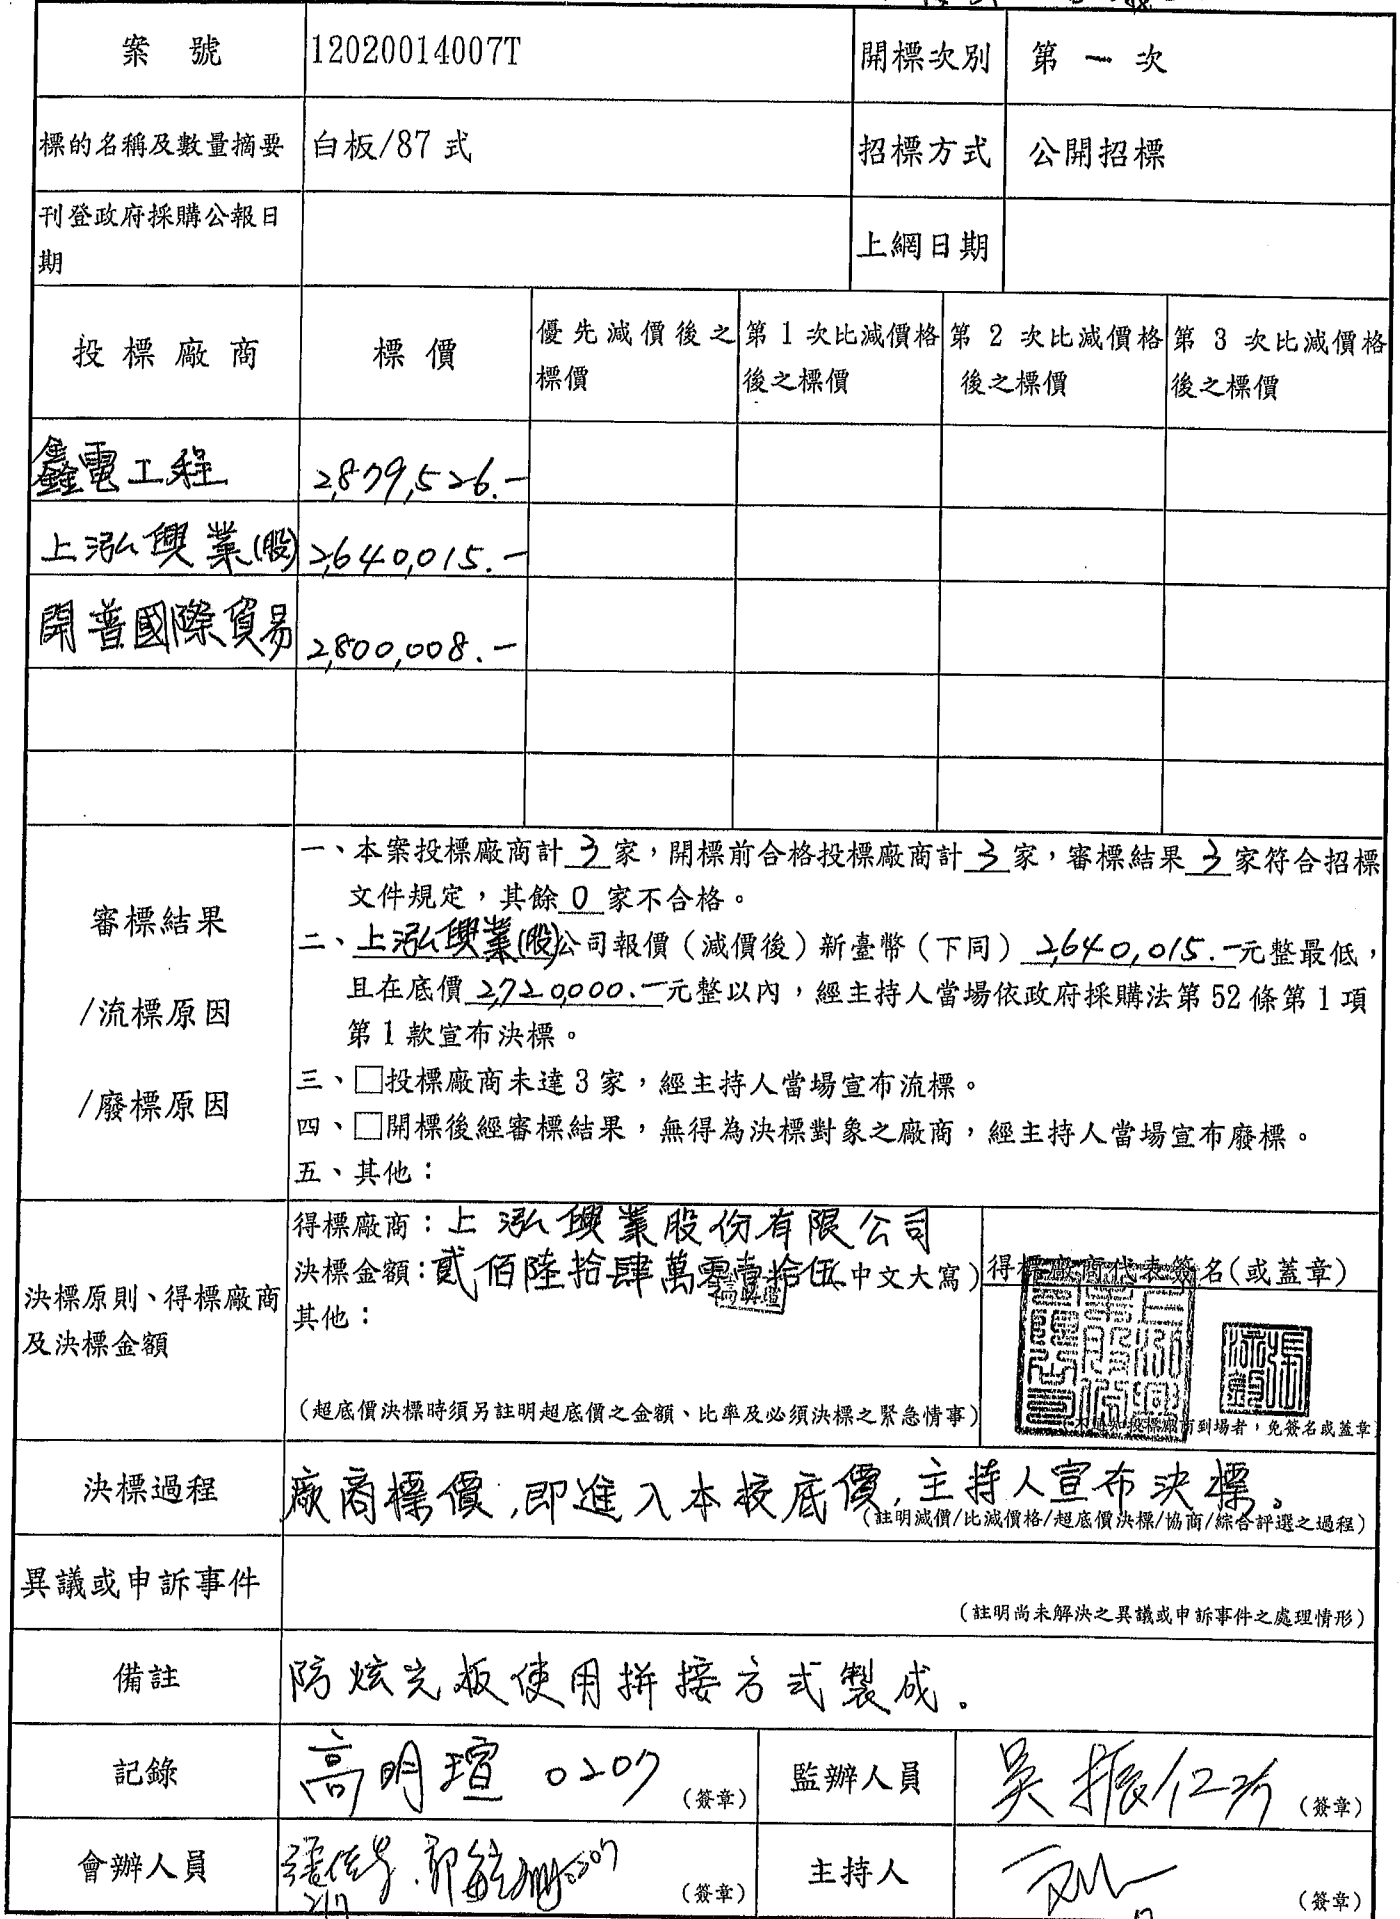 案 號 12020014007T 開標次別 第 一 次
標的名稱及數量摘要 白板/87 式 招標方式 公開招標
刊登政府採購公報日
期
上網日期
投 標 廠 商 標 價 優先減價後之 第 1 次比減價格 第 2 次比減價格 第 3 次比減價格
標價 後之標價 後之標價 後之標價
鑫電工程 2,879,526.-
上泓興業(股) 2,640,015.-
開普國際貿易 2,800,008.-
審標結果
/流標原因
/廢標原因
一、本案投標廠商計 3 家，開標前合格投標廠商計 3 家，審標結果 3 家符合招標
文件規定，其餘 0 家不合格。
二、上泓興業(股)公司報價（減價後）新臺幣（下同）2,640,015.-元整最低，
且在底價 2,720,000.-元整以內，經主持人當場依政府採購法第 52 條第 1 項
第 1 款宣布決標。
三、□投標廠商未達 3 家，經主持人當場宣布流標。
四、□開標後經審標結果，無得為決標對象之廠商，經主持人當場宣布廢標。
五、其他：
決標原則、得標廠商
及決標金額
得標廠商：上泓興業股份有限公司
決標金額：貳佰陸拾肆萬零壹拾伍(中文大寫)
其他：
(超底價決標時須另註明超底價之金額、比率及必須決標之緊急情事)
得標廠商代表簽名(或蓋章)
廠商到場者，免簽名或蓋章)
決標過程 廠商標價,即進入本校底價,主持人宣布決標。
(註明減價/比減價格/超底價決標/協商/綜合評選之過程)
異議或申訴事件
(註明尚未解決之異議或申訴事件之處理情形)
備註 防炫光板使用拼接方式製成。
記錄 高明瑄 0207 (簽章) 監辦人員 吳振仁 (簽章)
會辦人員 (簽章) 主持人 (簽章)